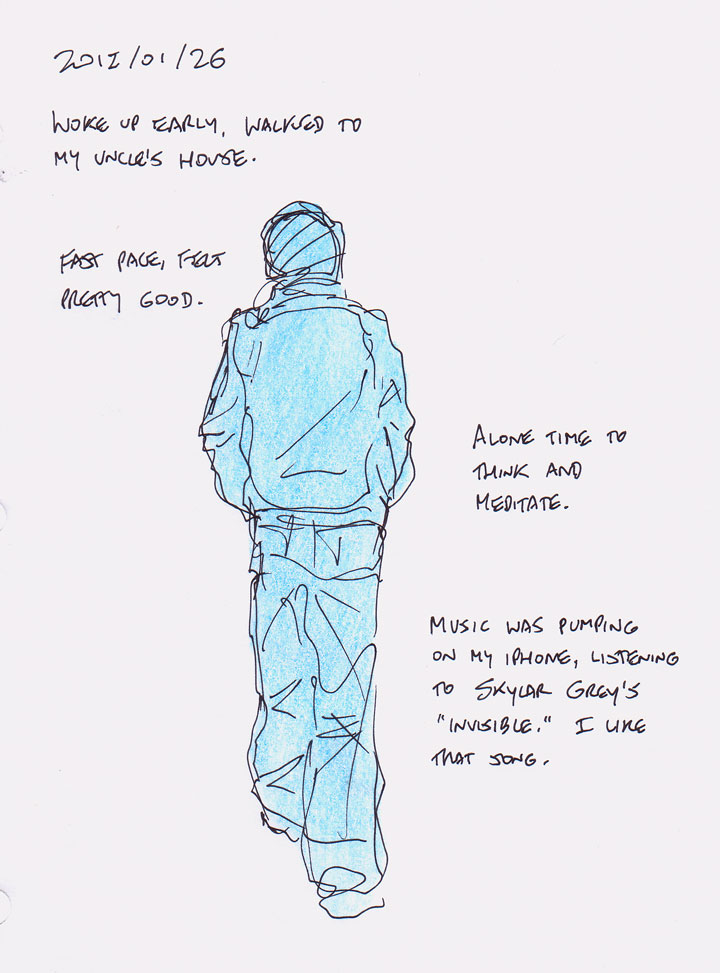 2012/01/26
WOKE UP EARLY, WALKED TO
MY UNCLE'S HOUSE.
FAST PACE, FELT
PRETTY GOOD.
ALONE TIME TO
THINK AND
MEDITATE.
MUSIC WAS PUMPING
ON MY IPHONE, LISTENING
TO SKYLAR GREY'S
"INVISIBLE." I LIKE
THAT SONG.